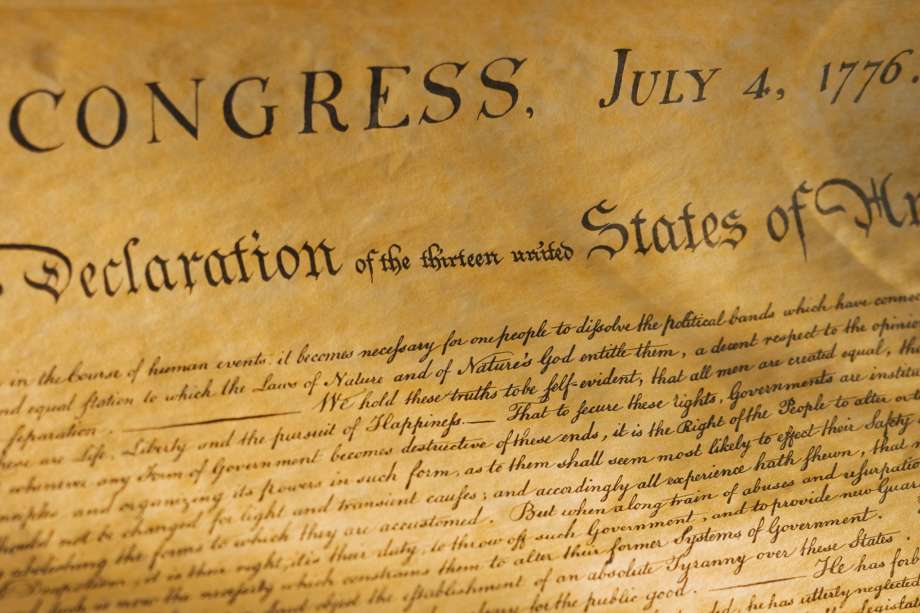 CONGRESS, JULY 4, 1776.
Declaration of the thirteen united States of Am
in the Course of human events, it becomes necessary for one people to dissolve the political bands which have connec
nd equal station to which the Laws of Nature and of Nature's God entitle them, a decent respect to the opinio
separation. We hold these truths to be self-evident, that all men are created equal, tha
these are Life, Liberty and the pursuit of Happiness.— That to secure these rights, Governments are institu
whenever any Form of Government becomes destructive of these ends, it is the Right of the People to alter or to
principles and organizing its powers in such form, as to them shall seem most likely to effect their Safety
should not be changed for light and transient causes; and accordingly all experience hath shewn, that
abolishing the forms to which they are accustomed. But when a long train of abuses and usurpatio
Despotism, it is their right, it is their duty, to throw off such Government, and to provide new Guar
such is now the necessity which constrains them to alter their former Systems of Government.
object the establishment of an absolute Tyranny over these States.
for the public good. — He has forb
he has utterly neglected